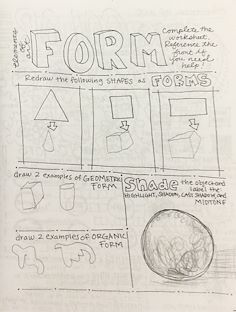 elements
of
art
FORM
Complete the
worksheet.
Reference the
front if
you need
help!
Redraw the following SHAPES as FORMS
draw 2 examples of GEOMETRIC
FORM
Shade the object and
label the
HIGHLIGHT, SHADOW, CAST SHADOW, and
MIDTONE
draw 2 examples of ORGANIC
FORM